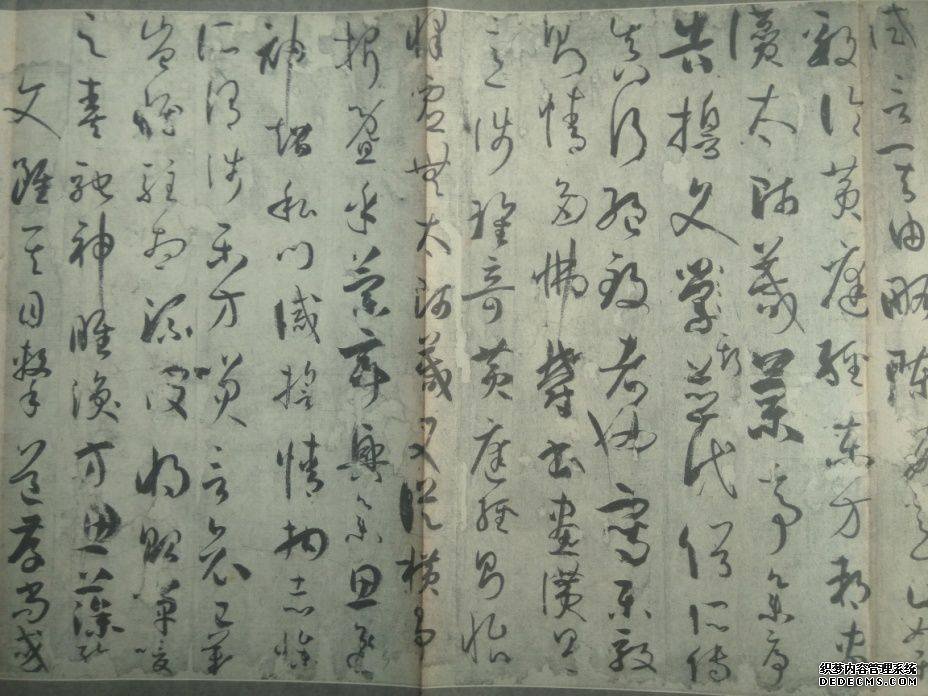 試言其由略陳數意止如樂
毅論黃庭經東方朔畫
讚太師箴蘭亭集序
告誓文斯並代俗所傳
真行絕致者也寫樂毅
則情多怫鬱書畫讚則
意涉瓌奇黃庭經則怡
懌虛無太師箴又縱橫爭
折暨乎蘭亭興集思逸
神超私門誡誓情拘志慘
所謂涉樂方笑言哀已歎
豈惟駐想流波將貽嘽喛
之奏馳神睢渙方思藻繪
文雖其目擊道存尚或
织梦内容管理系统
DEDECMS.COM